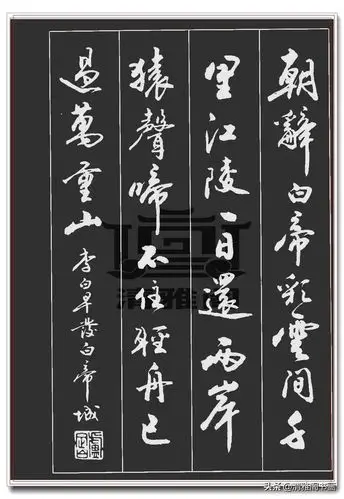 朝辭白帝彩雲間千
里江陵一日還兩岸
猿聲啼不住輕舟已
過萬重山
李白早發白帝城
清雅閣
头条@清雅阁书画